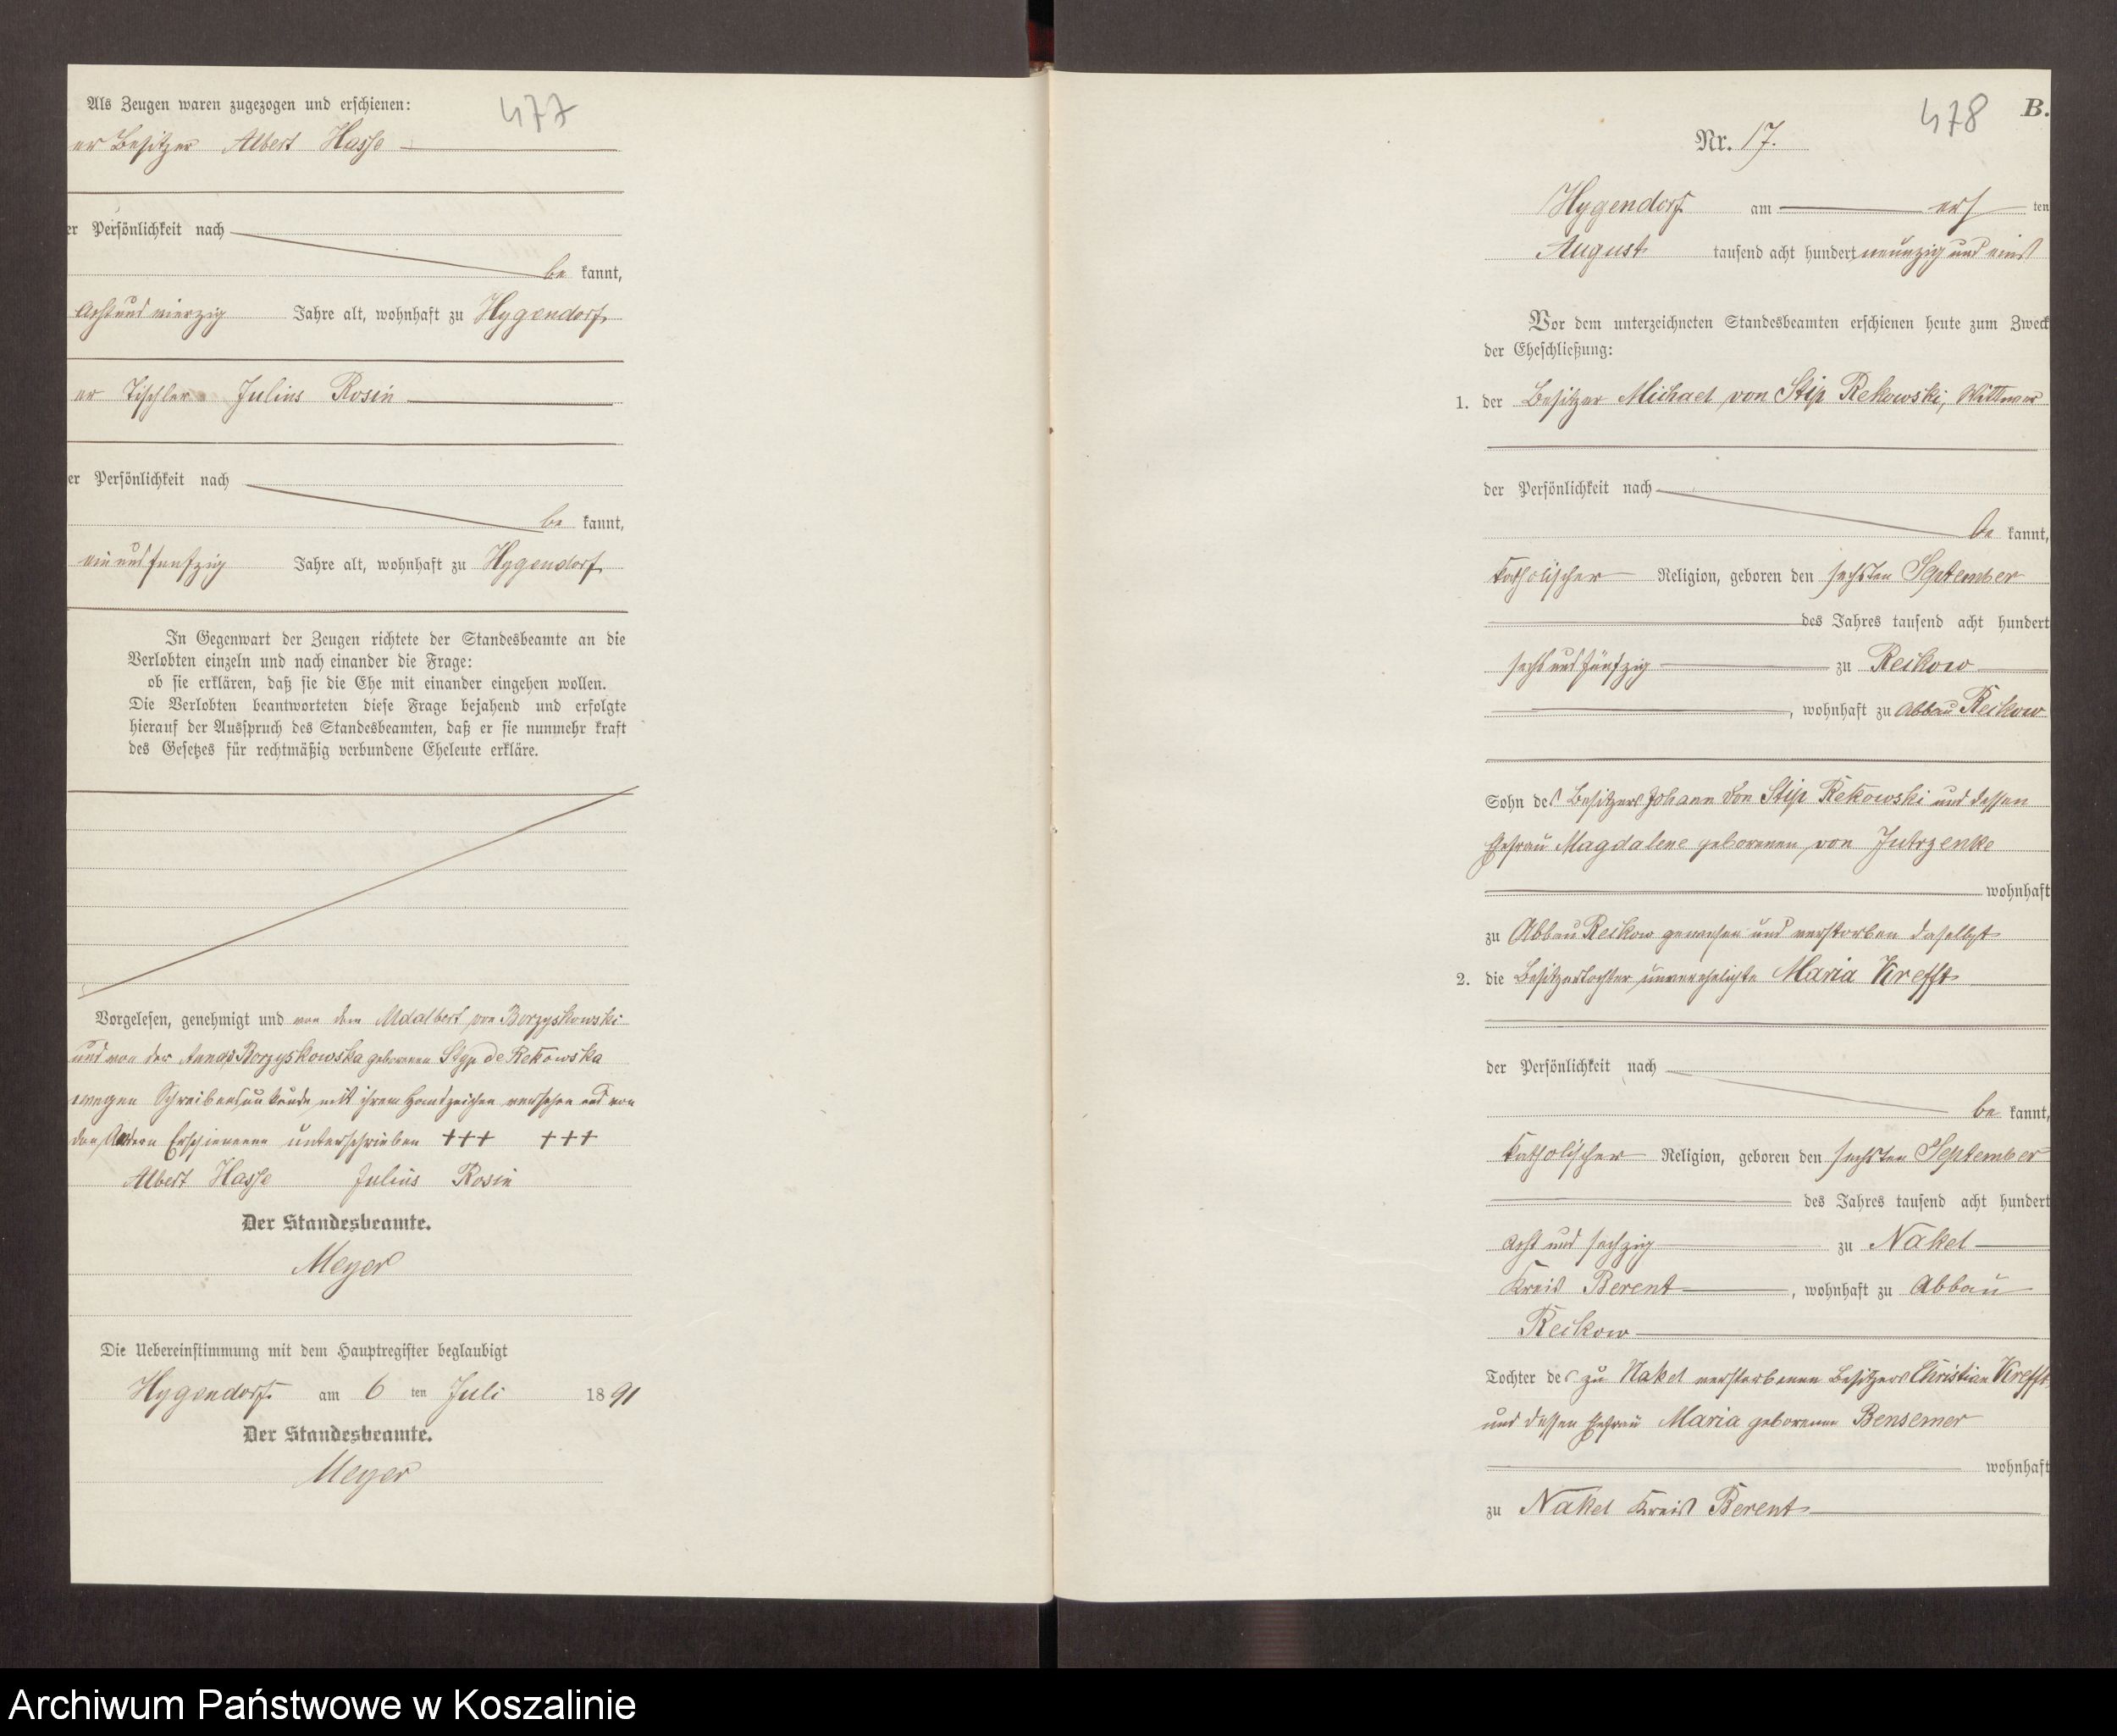 477
Als Zeugen waren zugezogen und erschienen:
er Besitzer Albert Hasse
er Persönlichkeit nach
be kannt,
acht und vierzig Jahre alt, wohnhaft zu Hygendorf
er Tischler Julius Rosin
er Persönlichkeit nach
be kannt,
ein und funfzig Jahre alt, wohnhaft zu Hygendorf
In Gegenwart der Zeugen richtete der Standesbeamte an die
Verlobten einzeln und nach einander die Frage:
ob sie erklären, daß sie die Ehe mit einander eingehen wollen.
Die Verlobten beantworteten diese Frage bejahend und erfolgte
hierauf der Ausspruch des Standesbeamten, daß er sie nunmehr kraft
des Gesetzes für rechtmäßig verbundene Eheleute erkläre.
Vorgelesen, genehmigt und von dem Adalbert von Borzyskowski
und von der Anna Borzyskowska geborenen Styp de Rekowska
wegen Schreibensunkunde mit ihrem Handzeichen versehen und von
den Andern Erschienenen unterschrieben +++ +++
Albert Hasse Julius Rosin
Der Standesbeamte.
Meyer
Die Uebereinstimmung mit dem Hauptregister beglaubigt
Hygendorf am 6 ten Juli 1891
Der Standesbeamte.
Meyer
478 B.
Nr. 17.
Hygendorf am ers ten
August tausend acht hundert neunzig und eins
Vor dem unterzeichneten Standesbeamten erschienen heute zum Zweck
der Eheschließung:
1. der Besitzer Michael von Stip Rekowski, Wittwer
der Persönlichkeit nach
be kannt,
katholischer Religion, geboren den sechsten September
des Jahres tausend acht hundert
sechs und fünfzig zu Reikow
, wohnhaft zu Abbau Reikow
Sohn des Besitzers Johann von Stip Rekowski und dessen
Ehefrau Magdalene geborenen von Jutrzenke
wohnhaft
zu Abbau Reikow gewesen und verstorben daselbst
2. die Besitzertochter unverehelichte Maria Krefft
der Persönlichkeit nach
be kannt,
katholischer Religion, geboren den sechsten September
des Jahres tausend acht hundert
acht und sechzig zu Nakel
Kreis Berent, wohnhaft zu Abbau
Reikow
Tochter des zu Nakel verstorbenen Besitzers Christian Krefft
und dessen Ehefrau Maria geborenen Bensemer
wohnhaft
zu Nakel Kreis Berent
Archiwum Państwowe w Koszalinie